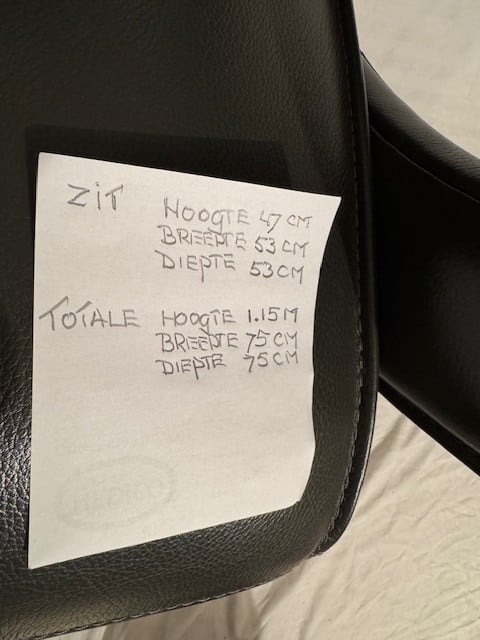 ZiT HOOGTE 47 CM
BREEDTE 53 CM
DIEPTE 53 CM
TOTALE HOOGTE 1.15 M
BREEDTE 75 CM
DIEPTE 75 CM